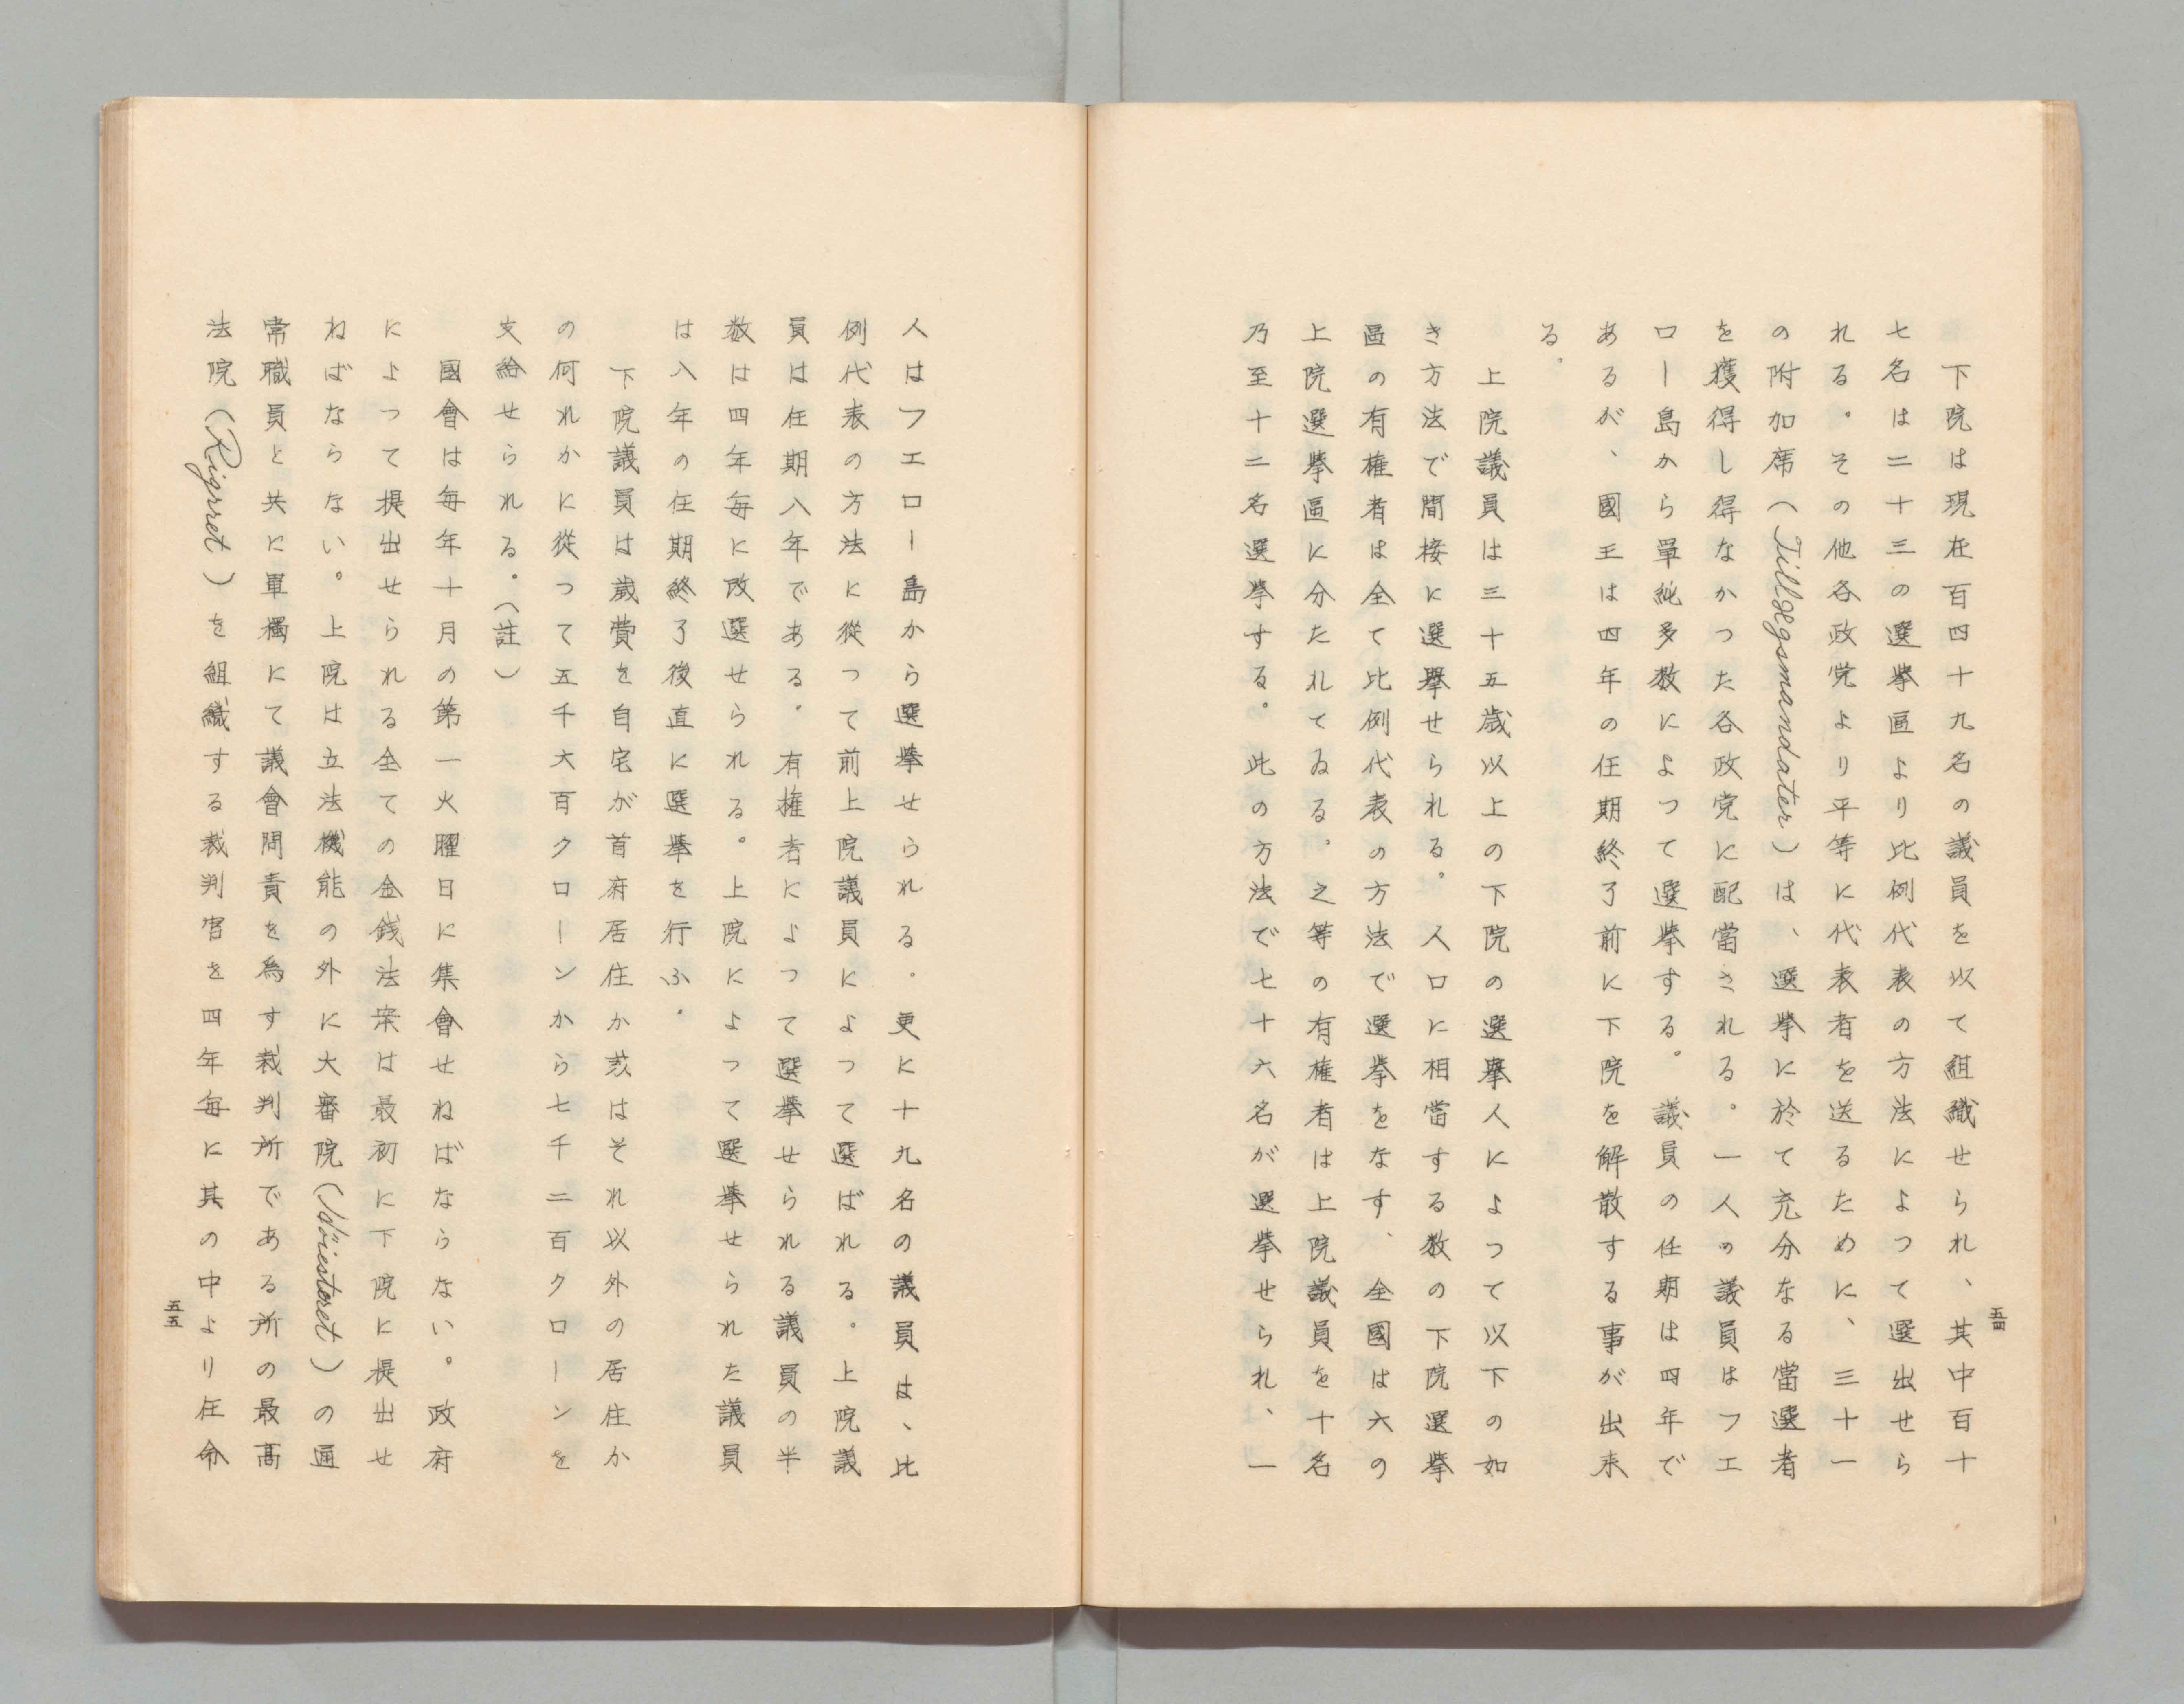 下院は現在百四十九名の議員を以て組織せられ、其中百十
七名は二十三の選挙區より比例代表の方法によつて選出せら
れる。その他各政党より平等に代表者を送るために、三十一
の附加席（Tillægsmandater）は、選挙に於て充分なる當選者
を獲得し得なかつた各政党に配當される。一人の議員はフエ
ロー島から單純多数によつて選挙する。議員の任期は四年で
あるが、國王は四年の任期終了前に下院を解散する事が出来
る。
上院議員は三十五歳以上の下院の選擧人によつて以下の如
き方法で間接に選擧せられる。人口に相當する数の下院選挙
區の有権者は全て比例代表の方法で選挙をなす、全國は六の
上院選挙區に分たれてゐる。之等の有権者は上院議員を十名
乃至十二名選挙する。此の方法で七十六名が選挙せられ、一
五四
人はフエロー島から選挙せられる。更に十九名の議員は、比
例代表の方法に從つて前上院議員によつて選ばれる。上院議
員は任期八年である。有権者によつて選挙せられる議員の半
数は四年毎に改選せられる。上院によつて選挙せられた議員
は八年の任期終了後直に選挙を行ふ。
下院議員は歳費を自宅が首府居住か或はそれ以外の居住か
の何れかに從つて五千六百クローンから七千二百クローンを
支給せられる。（註）
國會は毎年十月の第一火曜日に集會せねばならない。政府
によつて提出せられる全ての金銭法案は最初に下院に提出せ
ねばならない。上院は立法機能の外に大審院（）の通
常職員と共に單獨にて議會問責を為す裁判所である所の最高
法院（Rigsret）を組織する裁判官を四年毎に其の中より任命
五五